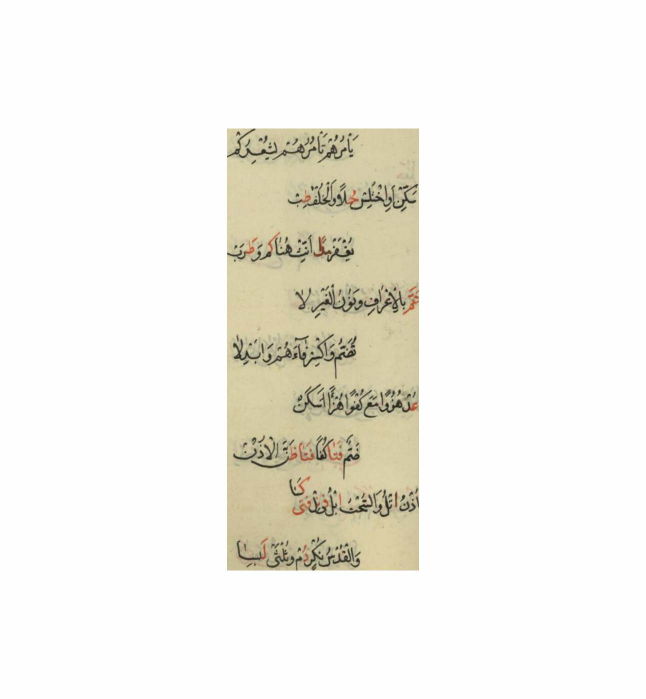 يَأمُرْهُمْ تَأمُرْهُمْ يُشْعِرُكُمْ
سَكِّنْ أَوِاخْتَلِسْ حُلاً وَالْخُلْفُ طِبْ
يُغْفَرْ مَدًا أَنِّثْ هُنَا كَمْ وَظَرِبْ
عَمَّ بِالْاعْرَافِ وَنُونُ الْغَيْرِ لَا
تُضَمُّ وَاكْسِرْ فَاءَهُمْ وَابْدِلَا
عُدْ هُزُوًا مَعَ كُفُوًا هُزْأً اسَكَنْ
ضُمَّ فَتًا كُفْأً فَتًا ظَنَّ الاذُنْ
أُذْنُ اتْلُ وَالسُّحْتُ ابْلُ نَلْ فَتًى كَسَا
وَالْقُدْسِ نُكْرٍ دُمْ وَثُلْثَيْ لَبِسَا